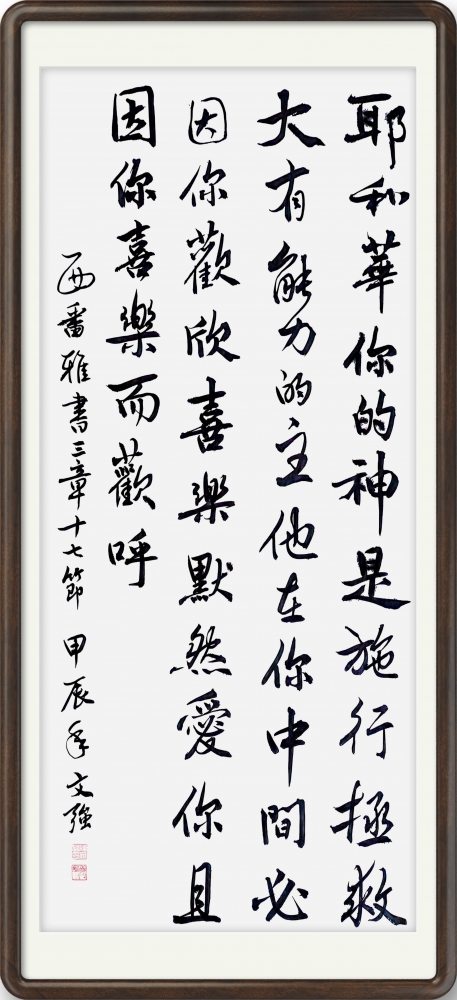 耶和華你的神是施行拯救
大有能力的主他在你中間必
因你歡欣喜樂默然愛你且
因你喜樂而歡呼
西番雅書三章十七節 甲辰年文强